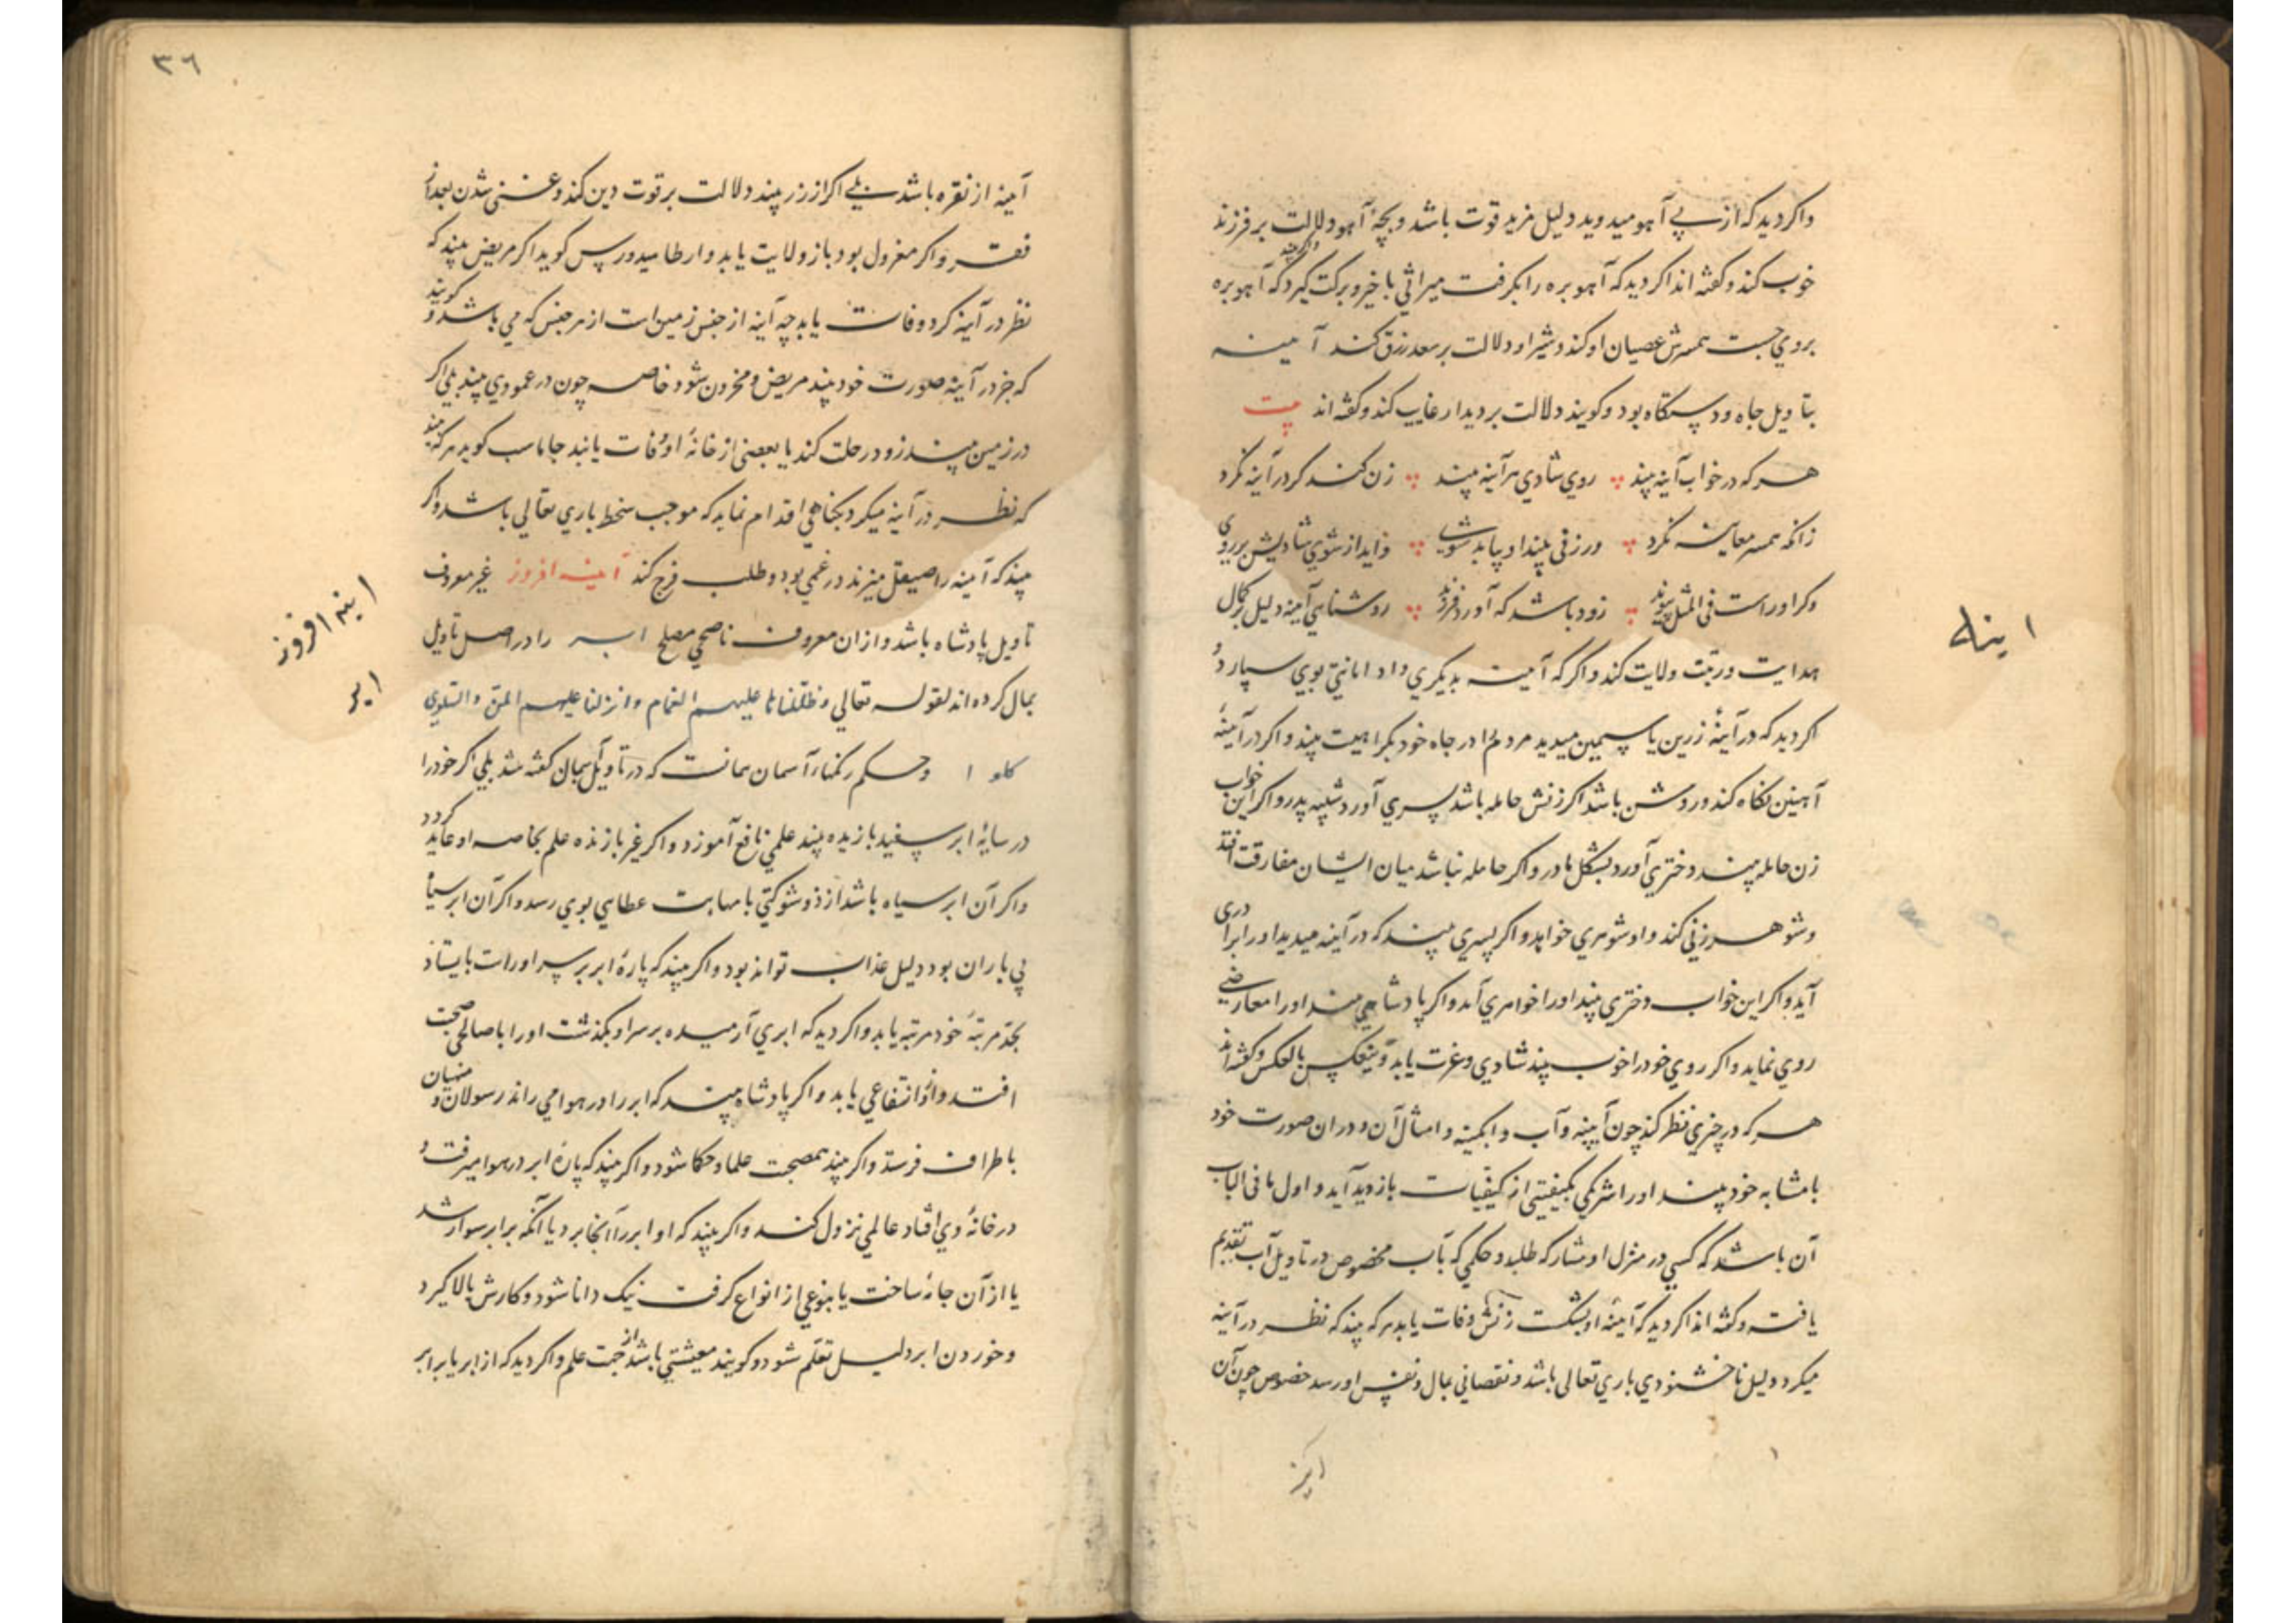 واکر دید که از پی آهو میدوید دلیل مزید قوت باشد و بچهٔ آهو دلالت بر فرزند
خوب کند و کفته اند اکر دید که آهو بره را بکرفت میراثی با خیر و برکت کیرد که آهو بره
بروی جست همسرش عصیان او کند و شیر او دلالت بر سعد رزق کند آینه
بتاویل جاه و دستکاه بود و کویند دلالت بر دیدار غایب کند و کفته اند بیت
هر که در خواب آینه بیند روی شادی هر آینه بیند زن کند کر در آینه نکرد
زانکه همسر معاینه نکرد ور زنی بیند او بیابد شوی زاید از شوی شادیش بر روی
وکر او راست فی المثل پیوند زود باشد که آورد فرزند روشنایی آینه دلیل بر کمال
هدایت و رتبت ولایت کند و اکر که آینه بدیکری داد امانتی بوی سپارد و
اکر دید که در آینهٔ زرین یا سیمین میدید مردم را در جاه خود بکراهیت بیند و اکر در آینهٔ
آهنین نکاه کند و روشن باشد اکر زنش حامله باشد پسری آورد شبیه پدر و اکر این خواب
زن حامله بیند دختری آورد بشکل مادر و اکر حامله نباشد میان ایشان مفارقت افتد
و شوهر زنی کند و او شوهری خواهد و اکر پسری بیند که در آینه میدید او را برادری
آید و اکر این خواب دختری بیند او را خواهری آید و اکر پادشاهی بیند او را معارضی
روی نماید و اکر روی خود را خوب بیند شادی و عزت یابد و بعکس بالعکس و کفته اند
هر که در چیزی نظر کند چون آیینه و آب و ابکینه و امثال آن و در ان صورت خود
یا مشابه خود بیند او را شریکی بکیفیتی از کیفیات بازدید آید و اول ما فی الباب
آن باشد که کسی در منزل او مشارکه طلبد و حکمی که بآب مخصوص در تاویل آب تقدیم
یافت و کفته اند اکر دید که آینهٔ او بشکست زنش وفات یابد هر که بیند که نظر در آینه
میکرد دلیل ناخشنودی باری تعالی باشد و نقصانی بمال و نفس او رسد خصوص چون آن
اینه
۳۶
آینه از نقره باشد بلی اکر از زر بیند دلالت بر قوت دین کند و غنی شدن بعد از
فقر و اکر معزول بود باز ولایت یابد و ارطامیدورس کوید اکر مریض بیند که
نظر در آینه کرد وفات یابد چه آینه از جنس زمین است از هر جنس که می باشد و کویند
که جز در آینه صورت خود بیند مریض و محزون شود خاصه چون در عمودی بیند بلی اکر
در زمین بیند زود رحلت کند یا بعضی از خانهٔ او وفات یابند جاماسب کوید هر که بیند
که نظر در آینه میکرد بکناهی اقدام نماید که موجب سخط باری تعالی باشد و اکر
بیند که آینه را صیقل میزند در غمی بود و طلب فرج کند آینه افروز غیر معروف
تاویل پادشاه باشد و از ان معروف ناصحی مصلح ابر را در اصل تاویل
بمال کرده اند لقوله تعالی و ظللنا علیهم الغمام و انزلنا علیهم المن و السلوی
کلوا و حکم آسمان همانست که در تاویل آسمان کفته شد بلی اکر خود را
در سایهٔ ابر سفید بازنده بیند علمی نافع آموزد و اکر غیر بازنده علم بخاصه او عاید کردد
و اکر آن ابر سیاه باشد از ذو شوکتی با مهابت عطایی بوی رسد و اکر آن ابر سیاه
بی باران بود دلیل عذاب تواند بود و اکر بیند که پارهٔ ابر بر سر او راست بایستاد
بحد مرتبهٔ خود مرتبه یابد و اکر دید که ابری آرمیده بر سر او بکذشت او را با صالحی صحبت
افتد و از او انتفاعی یابد و اکر پادشاه بیند که ابر را در هوا می راند رسولان و منهیان
باطراف فرستد و اکر بیند همصحبت علما و حکما شود و اکر بیند که پارهٔ ابر در هوا میرفت و
در خانهٔ وی افتاد عالمی نزول کند و اکر بیند که او ابر را آنجا برد یا آنکه بر ابر سوار شد
یا از آن جامهٔ ساخت یا بنوعی از انواع کرفت نیک دانا شود و کارش بالا کیرد
و خوردن ابر دلیل تعلم شود و کویند معیشتی باشد از جهت علم و اکر دید که از ابر یا بر ابر
اینه افروز
ابر